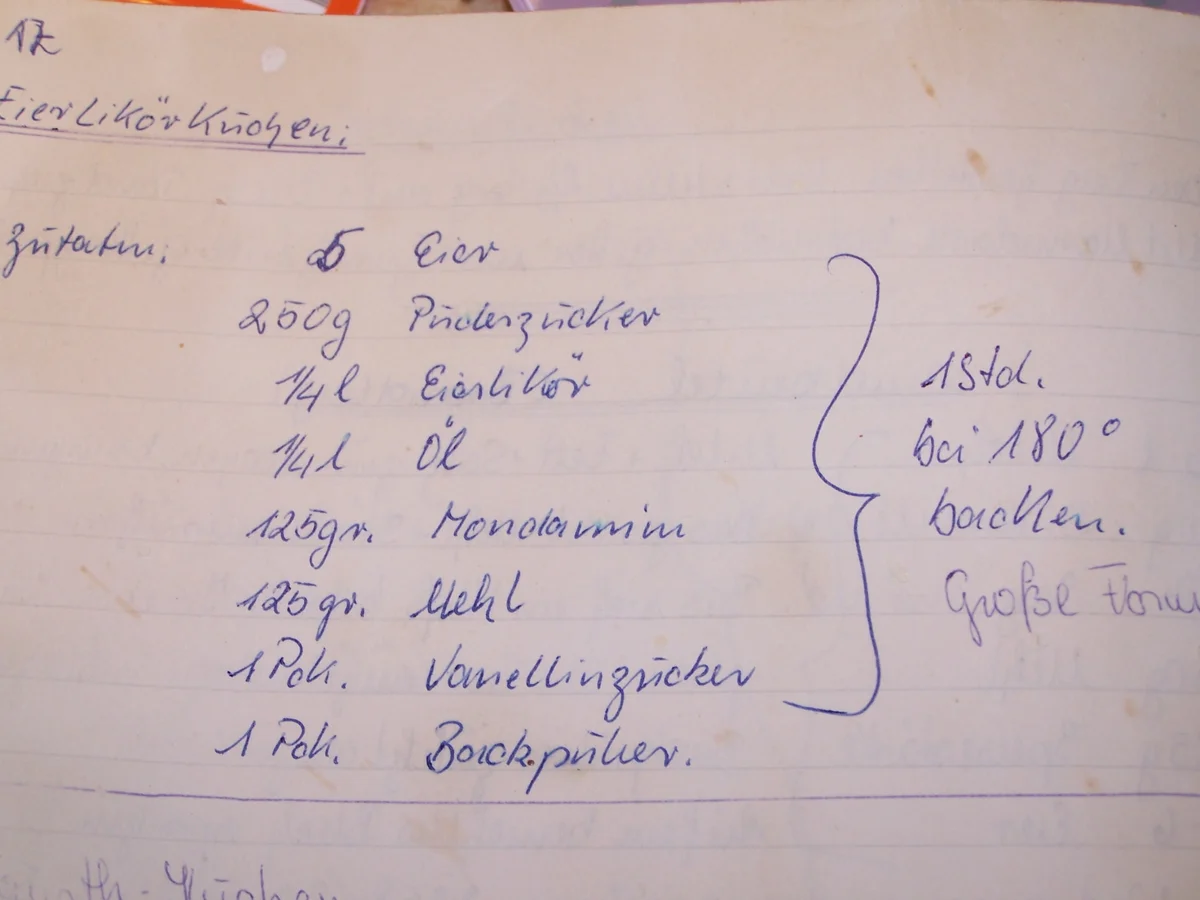 17
Eierlikörkuchen:
Zutaten:
5 Eier
250g Puderzucker
1/4 l Eierlikör
1/4 l Öl
125gr. Mondamin
125gr. Mehl
1 Pck. Vanellinzucker
1 Pck. Backpulver.
1 Std.
bei 180°
backen.
Große Form
Kuchen